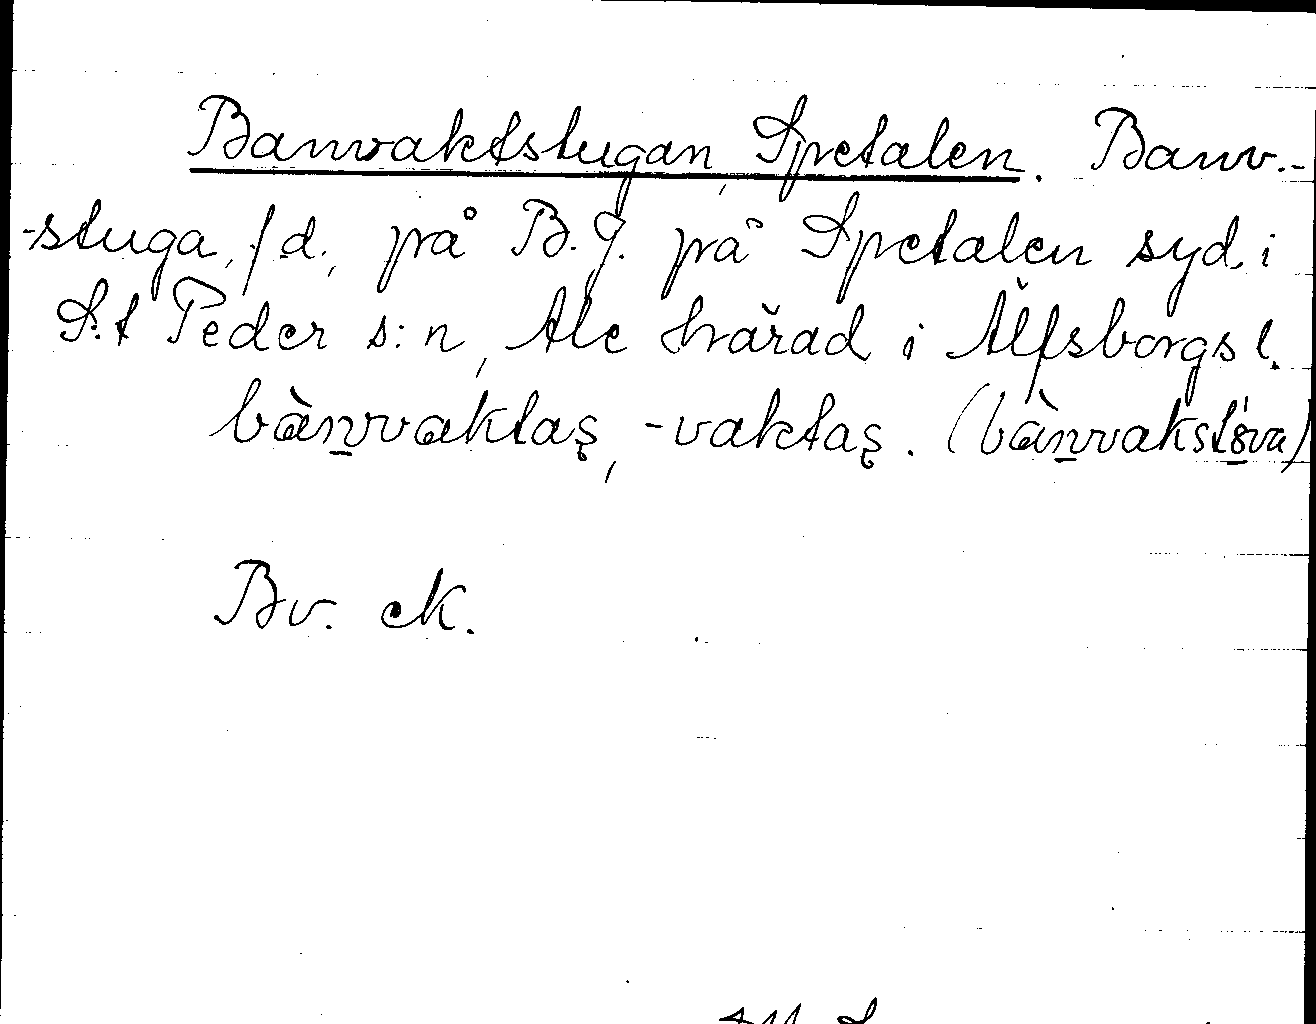 Banvaktstugan, Spetalen. Banv.-
-stuga, f d., på B.J. på Spetalen syd. i
S:t Peder s:n, Ale härad i Älfsborgs l.
bànvaktaş, -vaktaş. (bànvakstöva)
Bv. ek.